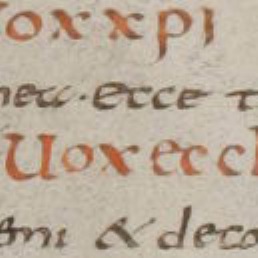 Uox xpi
mea. ecce t
Uox eccl
gni & deco